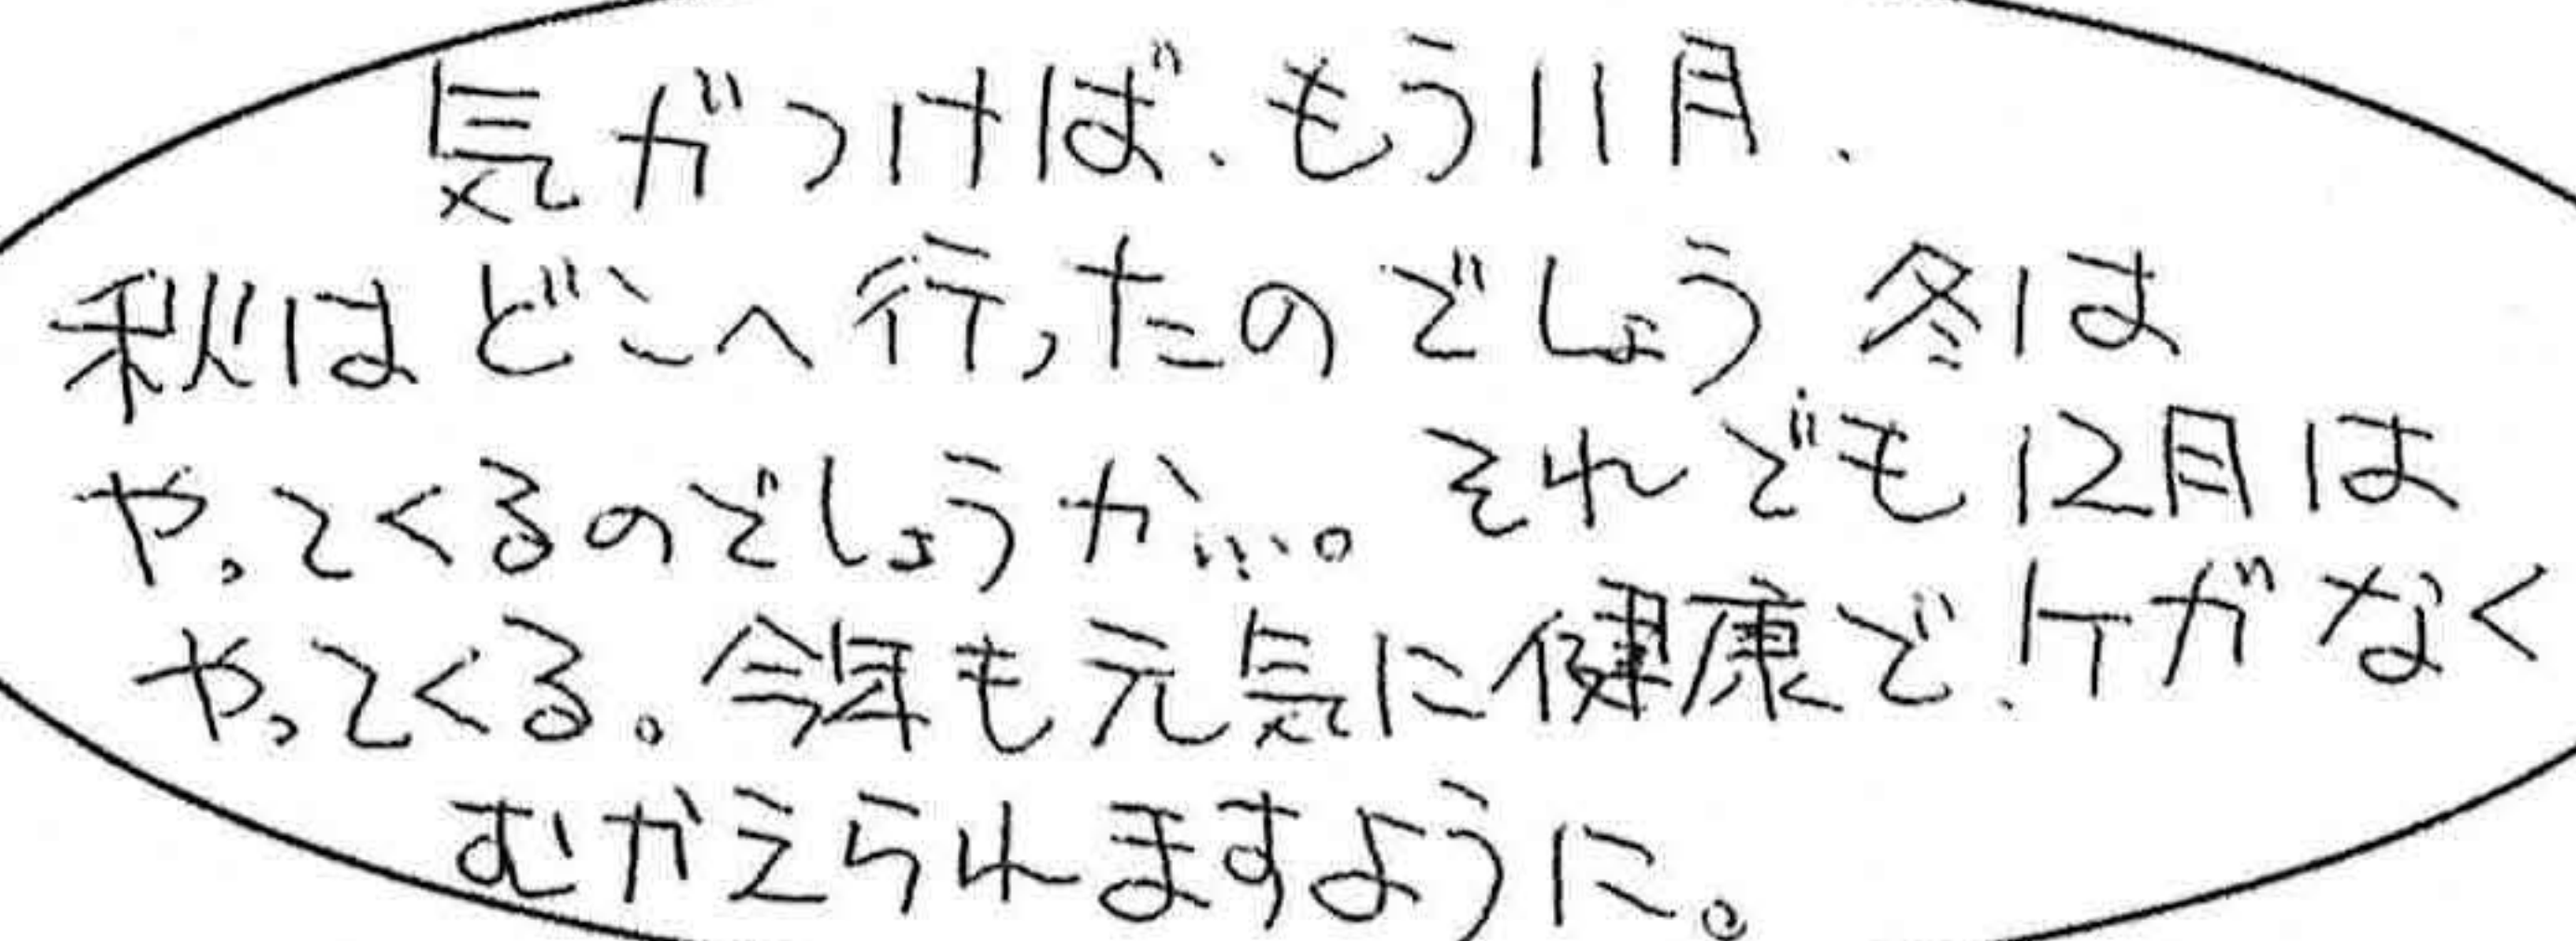 気がつけば、もう11月、
秋はどこへ行ったのでしょう、冬は
やってくるのでしょうか…。それでも12月は
やってくる。今年も元気に健康で、ケガなく
むかえられますように。